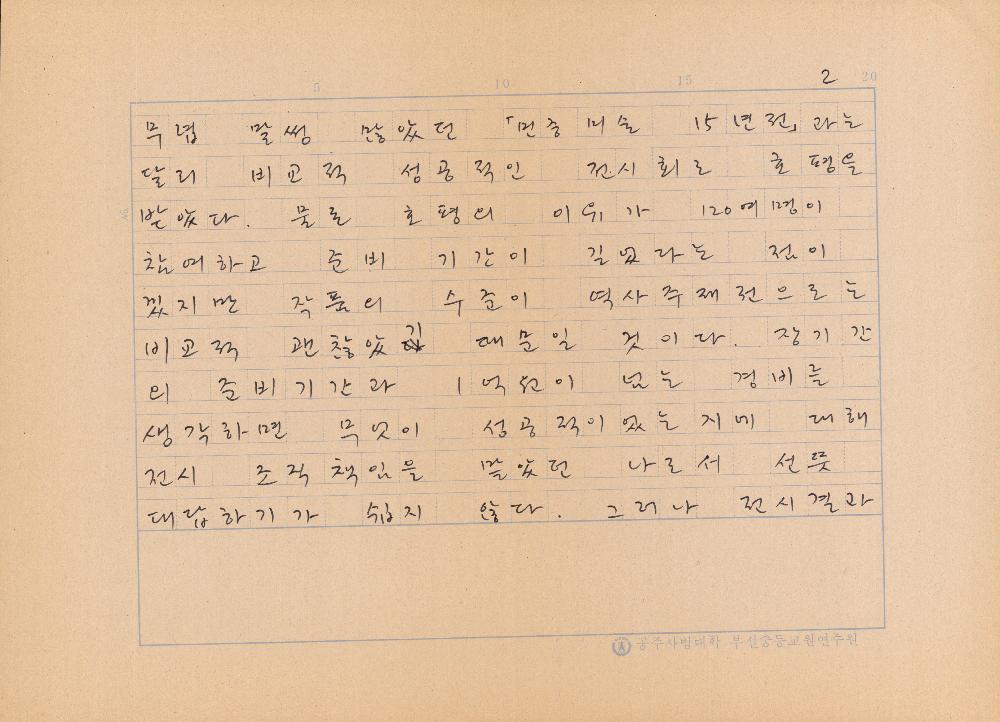 5 10 15 2 20
무렵 말썽 많았던 「민중미술 15년전」과는
달리 비교적 성공적인 전시회로 호평을
받았다. 물론 호평의 이유가 120여명이
참여하고 준비 기간이 길었다라는 점이
꼈지만 작품의 수준이 역사주제전으로는
비교적 괜찮았기 때문일 것이다. 장기간
의 준비기간과 1억원이 넘는 경비를
생각하면 무엇이 성공적이었는지에 대해
전시 조직책임을 맡았던 나로서 선뜻
대답하기가 쉽지 않다. 그러나 전시결과
공주사범대학 부설중등교원연수원